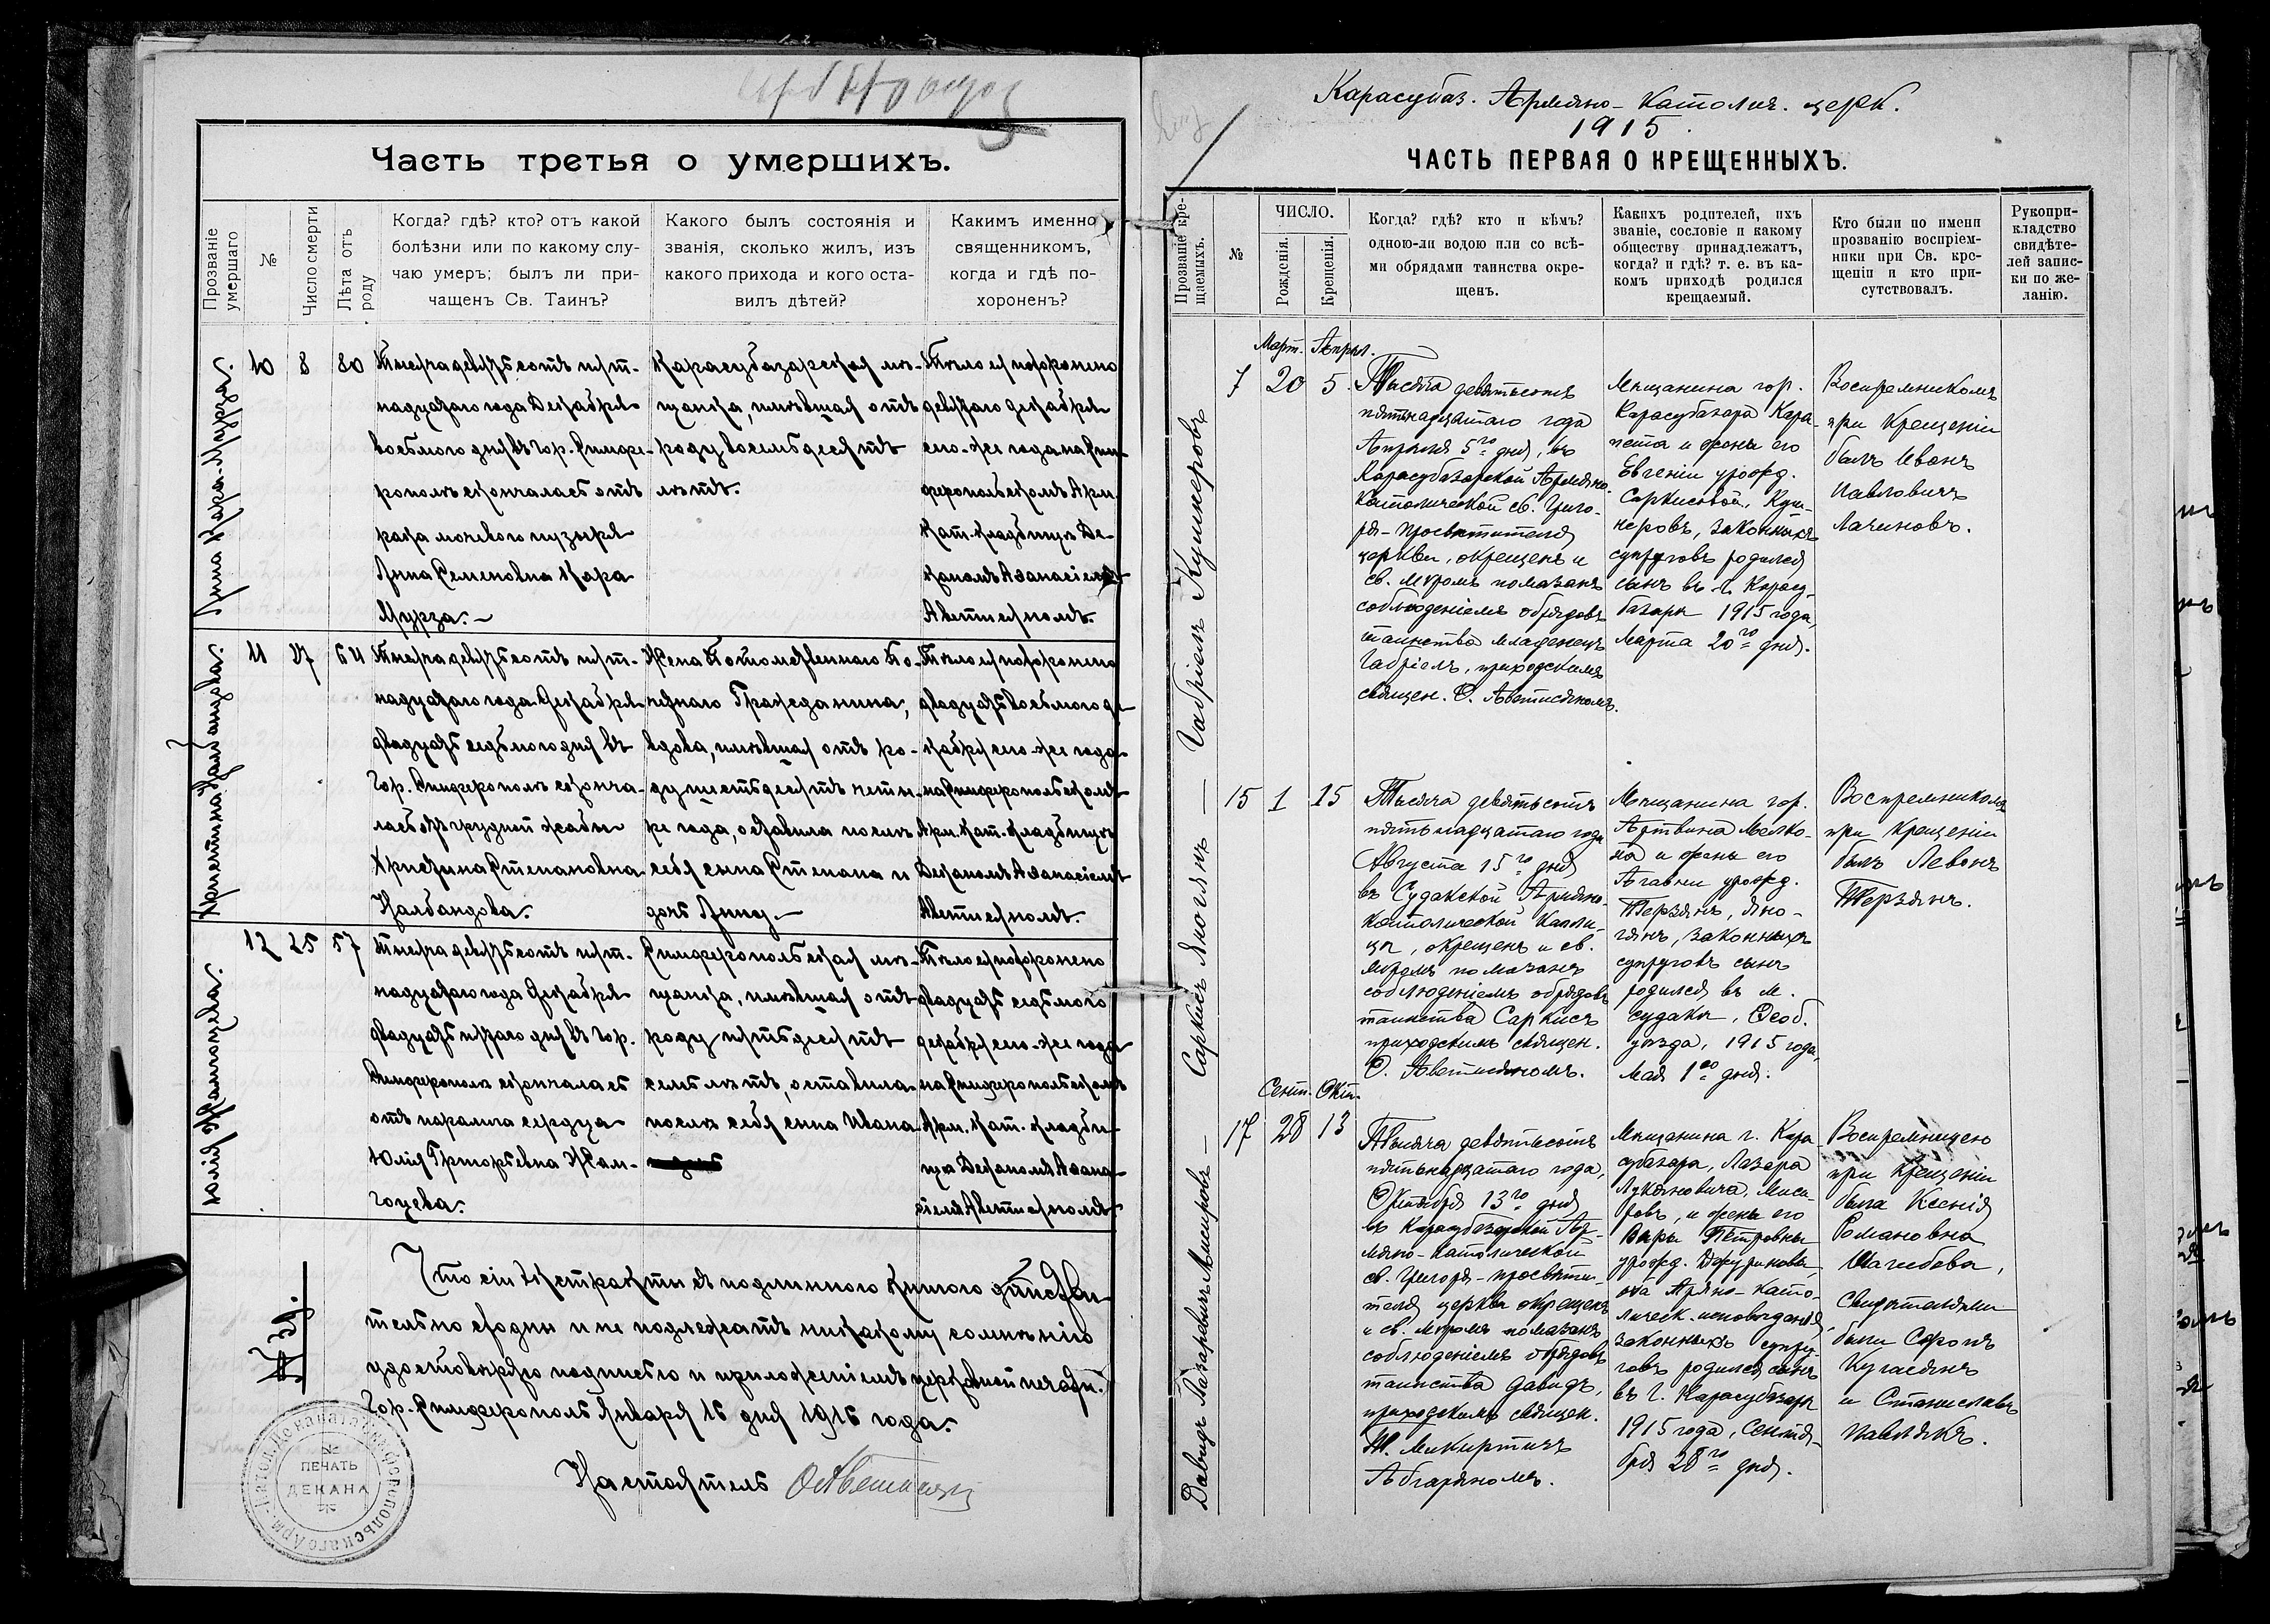 Часть третья о умершихъ.
Прозваніе умершаго
№
Число смерти
Лѣта отъ роду
Когда? гдѣ? кто? отъ какой
болѣзни или по какому слу-
чаю умеръ; былъ ли при-
чащенъ Св. Таинъ?
Какого былъ состоянія и
званія, сколько жилъ, изъ
какого прихода и кого оста-
вилъ дѣтей?
Какимъ именно
священникомъ,
когда и гдѣ по-
хороненъ?
Анна Кара-Мурза.
10 8 80
Тысяча девятьсотъ пят-
надцатаго года Декабря
восьмого дня въ Гор. Симфе-
рополѣ скончалась отъ
рака мочевого пузыря
Анна Семеновна Кара
Мурза.-
Карасубазарская мѣ-
щанка, имѣвшая отъ
роду восемьдесятъ
лѣтъ.
Тѣло ея похоронено
девятаго декабря
сего-же года на Сим-
феропольскомъ Арм.
Кат. кладбищѣ Де-
каномъ Аѳанасіемъ
Аветисяномъ.
Налбандова.
11 27 64
Тысяча девятьсотъ пят-
надцатаго года Декабря
двадцать седьмого дня въ
Гор. Симферополѣ сконча-
лась отъ грудной жабы
Христина Степановна
Налбандова.
Жена Потомственнаго По-
четнаго Гражданина,
вдова, имѣвшая отъ ро-
ду шестьдесятъ четы-
ре года, оставила послѣ
себя сына Степана и
дочь Анну.-
Тѣло ея похоронено
двадцать восьмого де-
кабря сего-же года
на Симферопольскомъ
Арм. Кат. кладбищѣ
Деканомъ Аѳанасіемъ
Аветисяномъ.
Юлія Жамгоцева.
12 25 57
Тысяча девятьсотъ пят-
надцатаго года Декабря
двадцать пятаго дня въ Гор.
Симферополѣ скончалась
отъ паралича сердца
Юлія Григорьевна Жам-
гоцева.
Симферопольская мѣ-
щанка, имѣвшая отъ
роду пятьдесятъ
семь лѣтъ, оставила
послѣ себя сына Ивана
Тѣло ея похоронено
двадцать седьмого
декабря сего-же года
на Симферопольскомъ
Арм. Кат. кладби-
щѣ Деканомъ Аѳана-
сіемъ Аветисяномъ.
№ 39.
Что сіи экстракты съ подлинного книгого дѣйстви-
тельно сходны и не подлежатъ никакому сомнѣнію
удостовѣряю подписью и приложеніемъ церковной печати.
Гор. Симферополь Января 16 дня 1916 года.
Настоятель ОАветисянъ
ПЕЧАТЬ
ДЕКАНА
Карасубаз. Армяно-Католич. церк.
1915.
ЧАСТЬ ПЕРВАЯ О КРЕЩЕННЫХЪ.
Прозваніе кре-
щаемихъ.
№
ЧИСЛО.
Рожденія.
Крещенія.
Когда? гдѣ? кто и кѣмъ?
одною-ли водою или со всѣ-
ми обрядами таинства окре-
щенъ.
Какихъ родителей, ихъ
званіе, сословіе и какому
обществу принадлежатъ,
когда? и гдѣ? т. е. въ ка-
комъ приходѣ родился
крещаемый.
Кто были по имени
прозванію воспріем-
ники при Св. кре-
щеніи и кто при-
сутствовалъ.
Рукопри-
кладство
свидѣте-
лей запис-
ки по же-
ланію.
Габріелъ Кушнеровъ
Март. Апрѣл.
7 20 5
Тысяча девятьсотъ
пятьнадцатаго года
Апрѣля 5го дня, въ
Карасубазарской Армяно-
Католической св. Григо-
рія-Просвѣтителя
церкви, окрещенъ и
св. Мѵромъ помазанъ
соблюденіемъ обрядовъ
таинства младенецъ
Габріелъ, приходскимъ
священ. О. Аветисяномъ.
Мѣщанина гор.
Карасубазара Кара-
пета и жены его
Евгеніи урожд.
Саркисовой, Куш-
неровъ, законныхъ
супруговъ родился
сынъ въ г. Карасу-
базарѣ 1915 года,
Марта 20го дня.
Воспремникомъ
при Крещеніи
былъ Иванъ
Павловичъ
Лачиновъ.
Саркисъ Яногянъ
15 1 15
Тысяча девятьсотъ
пятьнадцатаго года
Августа 15го дня
въ Судакской Армяно-
католической Капли-
цѣ, окрещенъ и св.
Мѵромъ помазанъ
соблюденіемъ обрядовъ
таинства Саркисъ
приходскимъ священ.
О. Аветисяномъ.
Мѣщанина гор.
Артвина Мелко-
на и жены его
Агавни урожд.
Терзянъ, Яно-
гянъ, законныхъ
супруговъ сынъ
родился въ м.
Судакѣ, Ѳеод.
уѣзда, 1915 года,
Мая 1го дня.
Воспремникомъ
при Крещеніи
былъ Левонъ
Терзянъ.
Давидъ Лазаревичъ Мисировъ
Сент. Окт.
17 28 13
Тысяча девятьсотъ
пятьнадцатаго года,
Октября 13го дня
въ Карасубазарской Ар-
мяно-католической
св. Григорія-просвѣти-
теля церкви окрещенъ
и св. Мѵромъ помазанъ
соблюденіемъ обрядовъ
таинства Давидъ,
приходскимъ священ.
М. Микиртичъ
Абгаряномъ.
Мѣщанина г. Кара
субазара, Лазаря
Лукьяновича, Миси-
ровъ, и жены его
Вѣры Петровны
урожд. Джуринова,
оба Армяно-като-
лическ. исповѣданія
законныхъ супру-
говъ родился сынъ
въ г. Карасубазарѣ
1915 года, Сентя-
бря 28го дня.
Воспремницею
при Крещеніи
была Ксенія
Романовна
Шагибова,
Свидѣтелями
были Сѳропъ
Кугасянъ
и Станиславъ
Павлякъ.